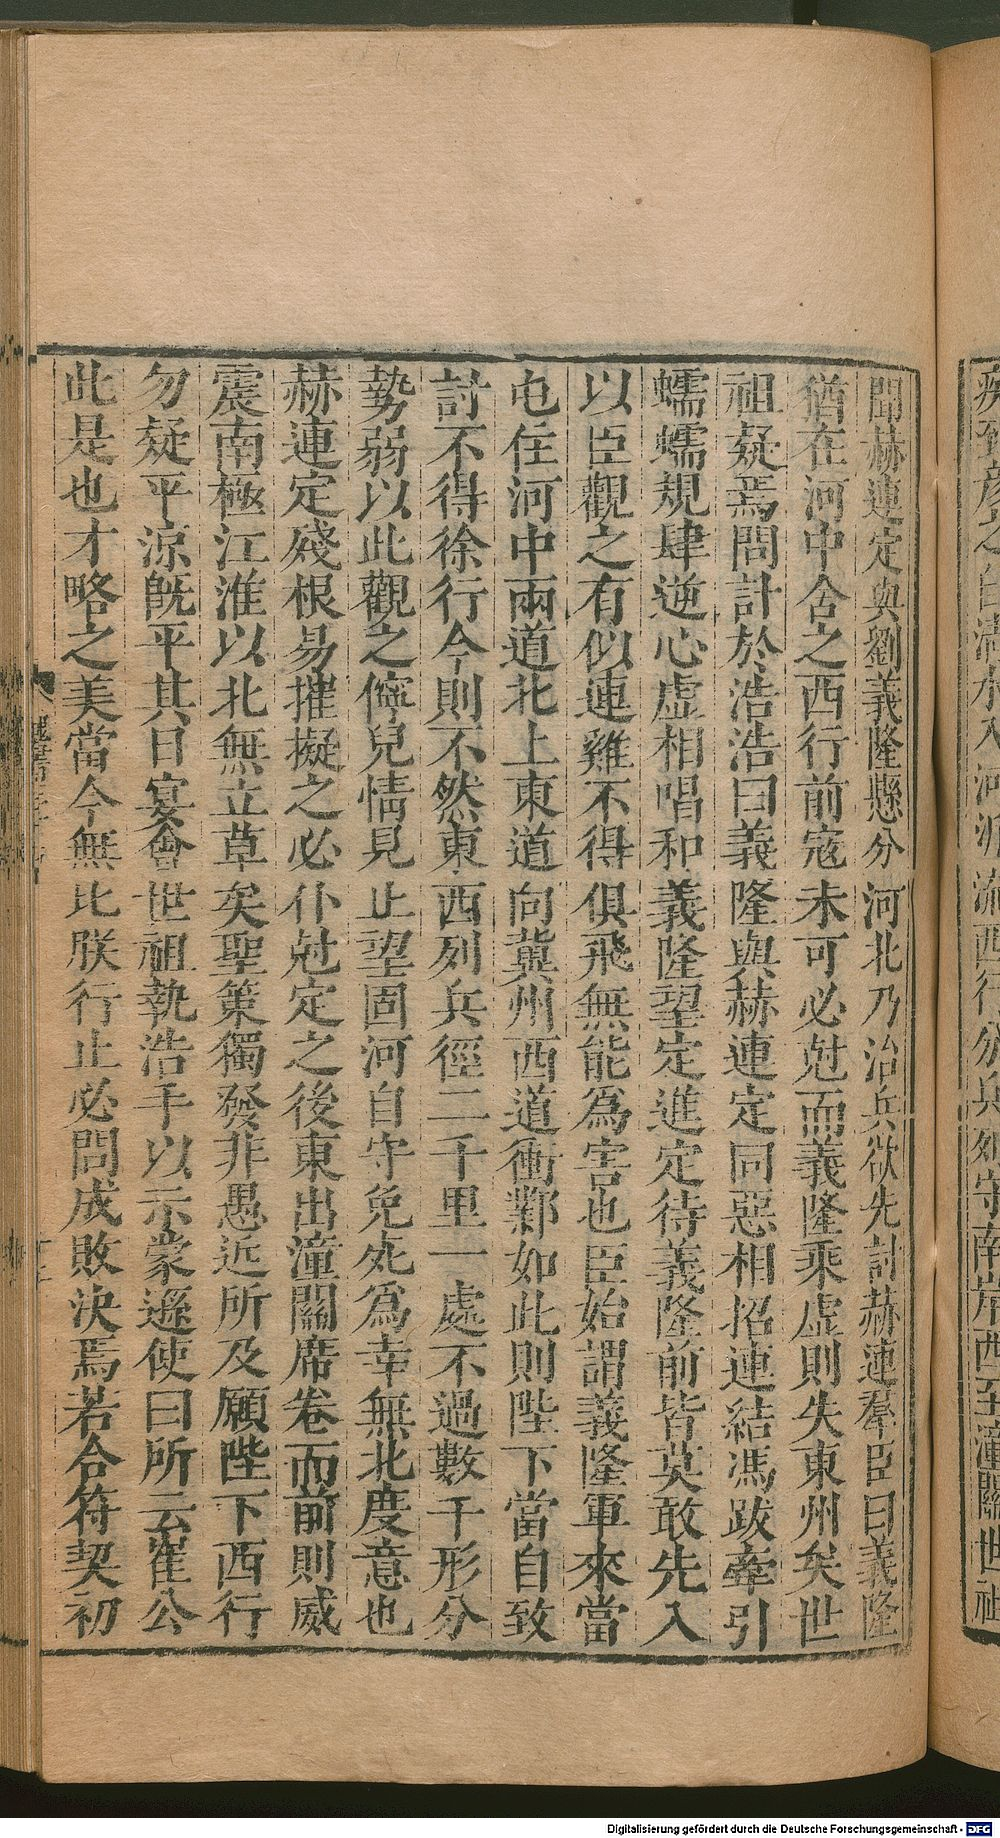 聞赫連定與劉義隆懸分河北乃治兵欲先討赫連羣臣曰義隆
猶在河中舍之西行前寇未可必尅而義隆乘虛則失東州矣世
祖疑焉問計於浩浩曰義隆與赫連定同惡相招連結馮跋牽引
蠕蠕規肆逆心虛相唱和義隆望定進定待義隆前皆莫敢先入
以臣觀之有似連雞不得俱飛無能爲害也臣始謂義隆軍來當
屯住河中兩道北上東道向冀州西道衝鄴如此則陛下當自致
討不得徐行今則不然東西列兵徑二千里一處不過數千形分
勢弱以此觀之儜兒情見止望固河自守免死爲幸無北度意也
赫連定殘根易摧擬之必仆尅定之後東出潼關席卷而前則威
震南極江淮以北無立草矣聖策獨發非愚近所及願陛下西行
勿疑平涼旣平其日宴會世祖執浩手以示蒙遜使曰所云崔公
此是也才略之美當今無比朕行止必問成敗決焉若合符契初
Digitalisierung gefördert durch die Deutsche Forschungsgemeinschaft - DFG